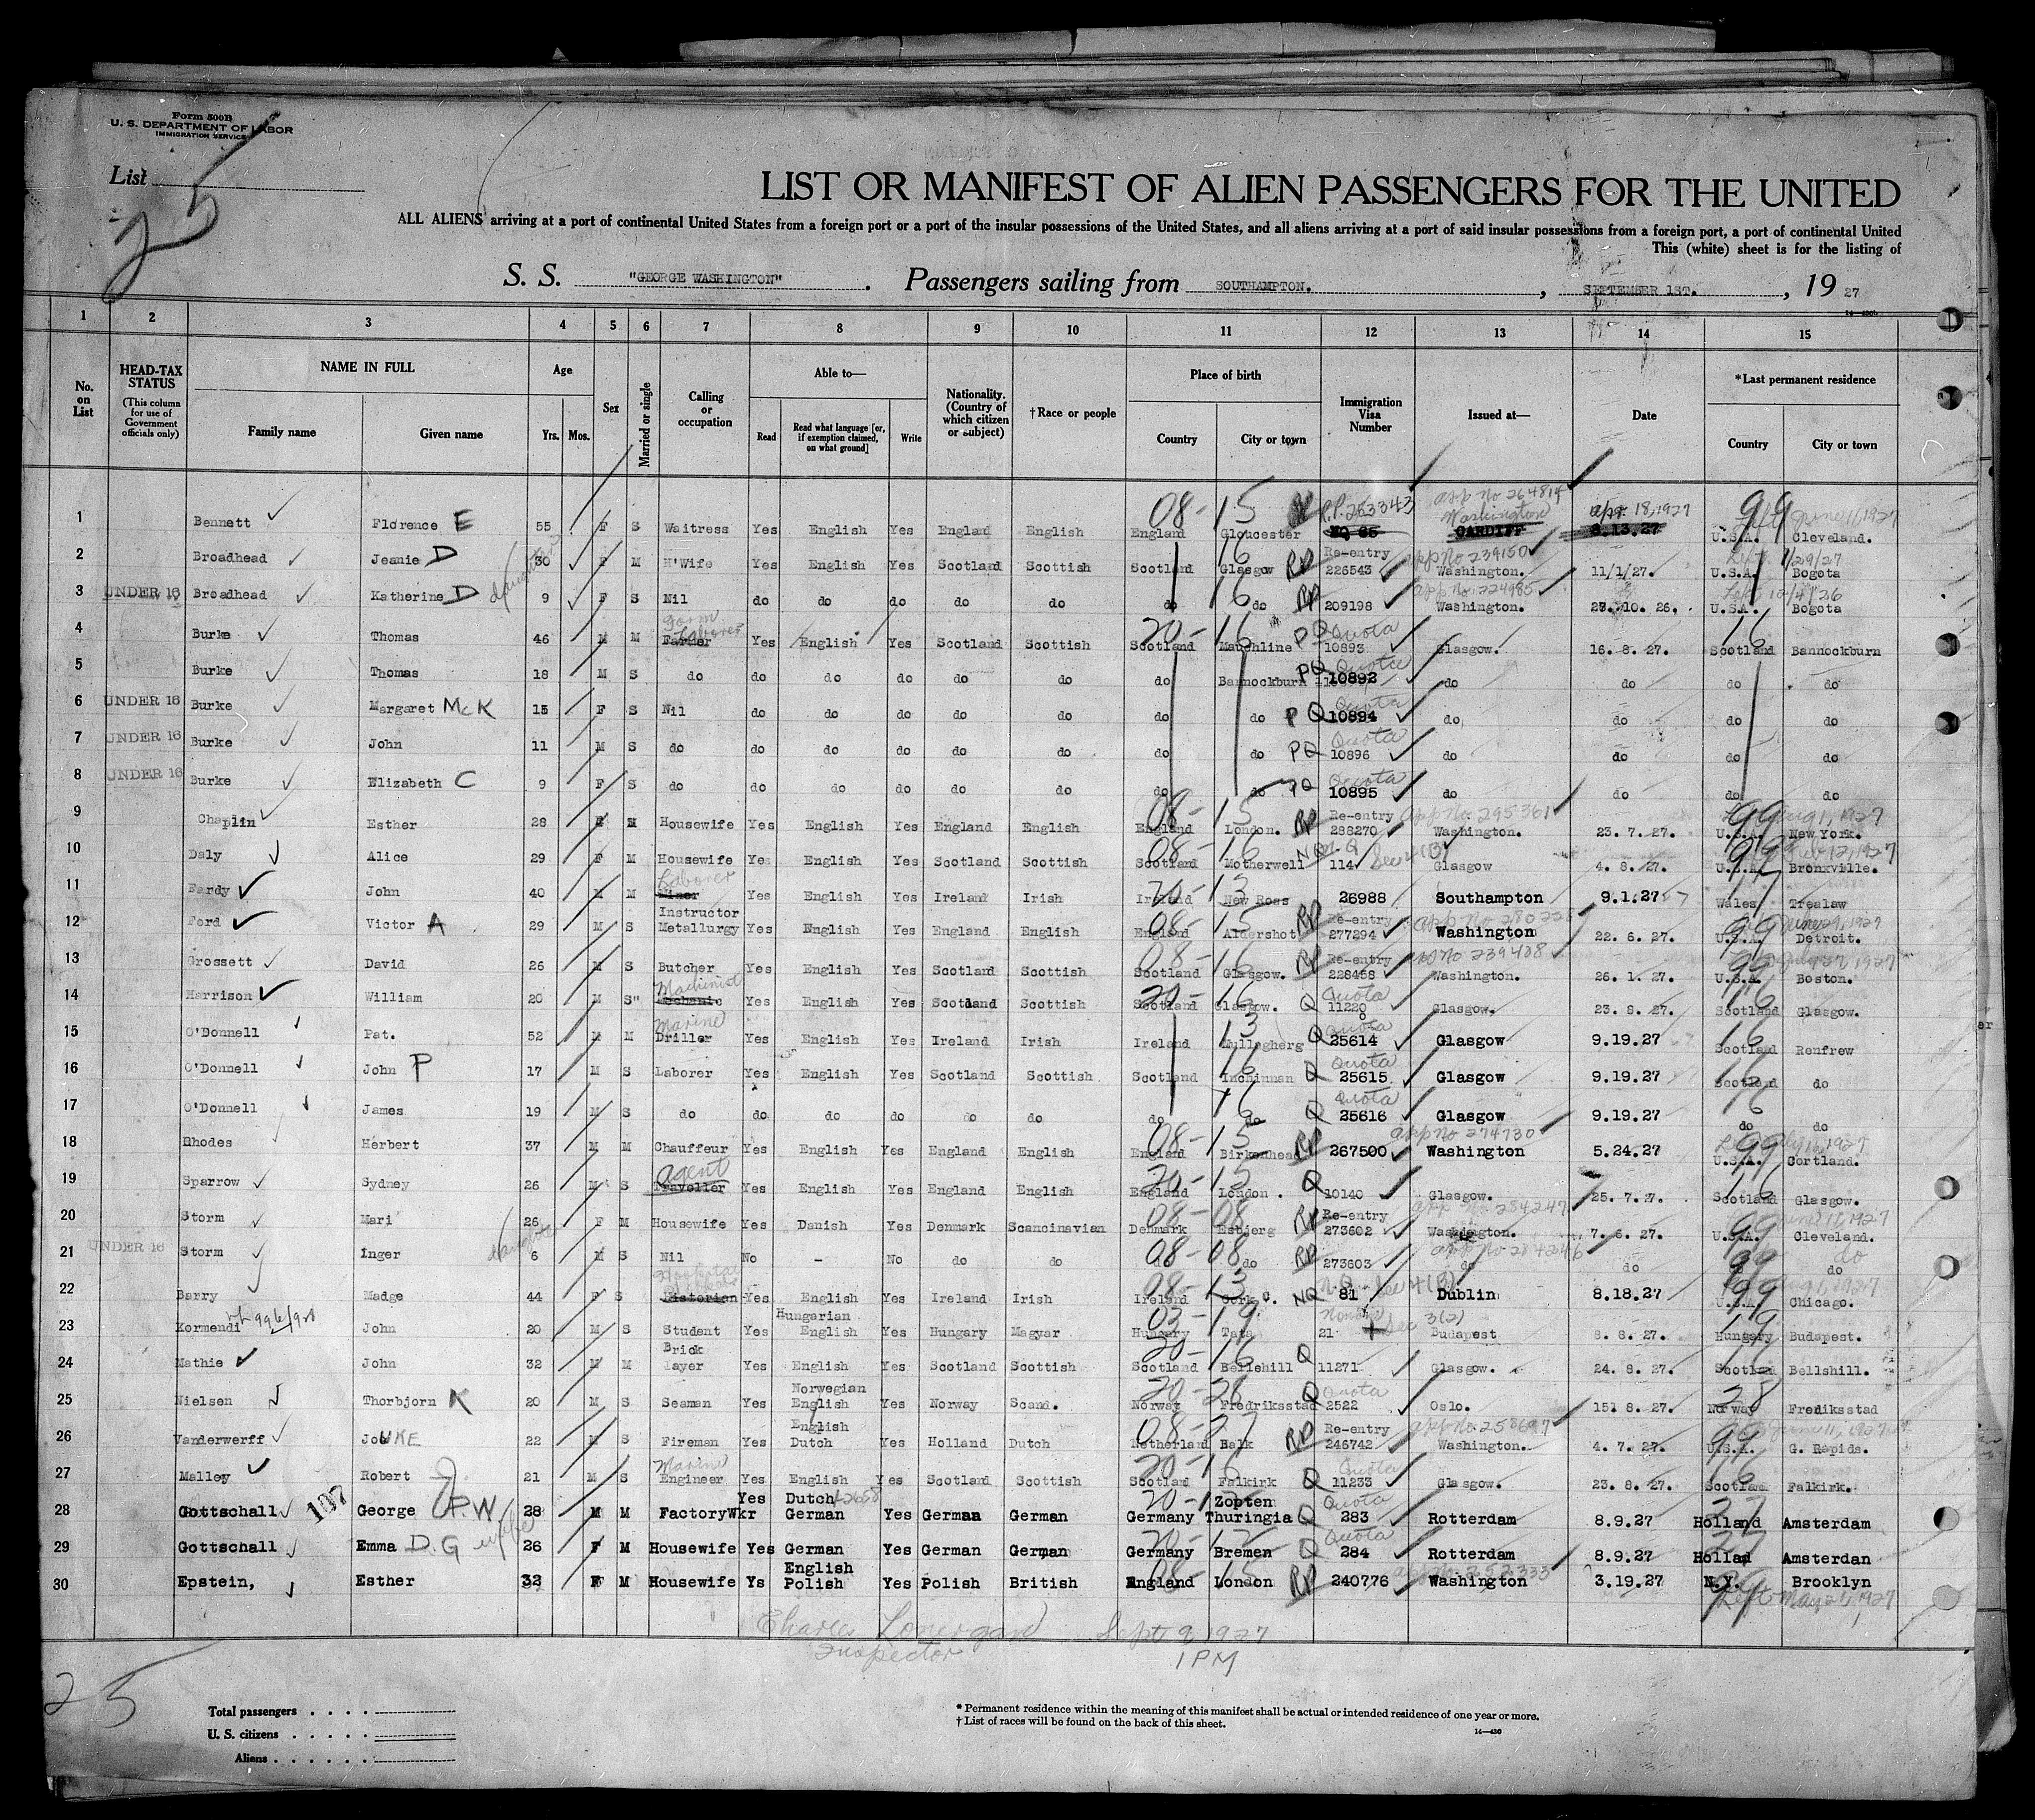 Form 500B
U. S. DEPARTMENT OF LABOR
IMMIGRATION SERVICE
List
25
LIST OR MANIFEST OF ALIEN PASSENGERS FOR THE UNITED
ALL ALIENS arriving at a port of continental United States from a foreign port or a port of the insular possessions of the United States, and all aliens arriving at a port of said insular possessions from a foreign port, a port of continental United
This (white) sheet is for the listing of
S. S. "GEORGE WASHINGTON". Passengers sailing from SOUTHAMPTON. , SEPTEMBER 1ST. , 19 27
1 2 3 4 5 6 7 8 9 10 11 12 13 14 15
No. on List HEAD-TAX STATUS (This column for use of Government officials only) NAME IN FULL Family name Given name Age Yrs. Mos. Sex Married or single Calling or occupation Able to— Read Read what language [or, if exemption claimed, on what ground] Write Nationality. (Country of which citizen or subject) †Race or people Place of birth Country City or town Immigration Visa Number Issued at— Date *Last permanent residence Country City or town
1 Bennett Florence E 55 F S Waitress Yes English Yes England English England Gloucester 08-15 RP R.P. 263343 NQ 65 app No 264814 Washington CARDIFF apr. 18, 1927 8.13.27 99 U.S.A. Cleveland.
2 Broadhead Jeanie D 30 F M H'Wife Yes English Yes Scotland Scottish Scotland Glasgow 16 RP Re-entry 226543 app No 239150 Washington. 11/1/27. 1/29/27 U.S.A. Bogota
3 UNDER 16 Broadhead Katherine D daughter 9 F S Nil do do do do do do do 16 RP 209198 app No. 224985 Washington. 28. 10. 26. U.S.A. Bogota
4 Burke Thomas 46 M M Farmer Farm Laborer Yes English Yes Scotland Scottish Scotland Mauchline 20-16 PQ Quota 10893 Glasgow. 16. 8. 27. 16 Scotland Bannockburn
5 Burke Thomas 18 M S do do do do do do do Bannockburn PQ Quota 10892 do do do do
6 UNDER 16 Burke Margaret McK 15 F S Nil do do do do do do do PQ Quota 10894 do do do do
7 UNDER 16 Burke John 11 M S do do do do do do do do PQ Quota 10896 do do do do
8 UNDER 16 Burke Elizabeth C 9 F S do do do do do do do do PQ Quota 10895 do do do do
9 Chaplin Esther 28 F M Housewife Yes English Yes England English England London. 08-15 RP Re-entry 288270 app No. 295361 Washington. 23. 7. 27. 99 Aug 1, 1927 U.S.A. New York.
10 Daly Alice 29 F M Housewife Yes English Yes Scotland Scottish Scotland Motherwell 08-16 NQ 114 Sec 4(B) Glasgow 4. 8. 27. 99 U.S.A. Bronxville.
11 Fardy John 40 M M Miner Laborer Yes English Yes Ireland Irish Ireland New Ross 20-13 26988 Southampton 9.1.27 Wales Trealaw
12 Ford Victor A 29 M S Instructor Metallurgy Yes English Yes England English England Aldershot 08-15 RP Re-entry 277294 Washington 22. 6. 27. 99 June 29, 1927 U.S.A. Detroit.
13 Grossett David 26 M S Butcher Yes English Yes Scotland Scottish Scotland Glasgow. 08-16 RP Re-entry 228468 239438 Washington. 26. 1. 27. 99 U.S.A. Boston.
14 Harrison William 20 M S" Mechanic Machinist Yes English Yes Scotland Scottish Scotland Glasgow. 20-16 Q Quota 11220 Glasgow. 23. 8. 27. 16 Scotland Glasgow.
15 O'Donnell Pat. 52 M M Marine Driller Yes English Yes Ireland Irish Ireland Mullagherg 13 Q Quota 25614 Glasgow 9.19.27 16 Scotland Renfrew
16 O'Donnell John P 17 M S Laborer Yes English Yes Scotland Scottish Scotland Inchinnan 16 Q Quota 25615 Glasgow 9.19.27 16 Scotland do
17 O'Donnell James 19 M S do do do do do do do do 16 Q Quota 25616 Glasgow 9.19.27 16 do do
18 Rhodes Herbert 37 M M Chauffeur Yes English Yes England English England Birkenhead 08-15 RP 267500 app no 274730 Washington 5.24.27 99 U.S.A. Cortland.
19 Sparrow Sydney 26 M S Traveller Agent Yes English Yes England English England London. 20-15 Q 10140 Glasgow. 25. 7. 27. 16 Scotland Glasgow.
20 Storm Mari 26 F M Housewife Yes Danish Yes Denmark Scandinavian Denmark Esbjerg 08-08 RP Re-entry 273602 app No. 284247 Washington. 7. 6. 27. 99 June 11, 1927 U.S.A. Cleveland.
21 UNDER 16 Storm Inger daughter 6 M S Nil No - No do do do do 08-08 RP 273603 app No 284246 do do 99 do do
22 Barry Madge 44 F S Historian Yes English Yes Ireland Irish Ireland Cork. 08-13 NQ 81 Sec 4(B) Dublin 8.18.27 99 U.S.A. Chicago.
23 Kormendi John 20 M S Student Yes Hungarian English Yes Hungary Magyar Hungary Tata 03-19 21 Sec 3(2) Budapest 8. 8. 27. 19 Hungary Budapest.
24 Mathie John 32 M M Brick layer Yes English Yes Scotland Scottish Scotland Bellshill 20-16 Q 11271 Glasgow. 24. 8. 27. 16 Scotlan Bellshill.
25 Nielsen Thorbjorn K 20 M S Seaman Yes Norwegian English Yes Norway Scand. Norway Fredriksstad 20-28 Q Quota 2522 Oslo. 15. 8. 27. 28 Norway Frediksstad
26 Vanderwerff JoUKE 22 M S Fireman Yes English Dutch Yes Holland Dutch Netherland Balk 08-27 RP Re-entry 246742 app no. 258697 Washington. 4. 7. 27. 99 June 11, 1927 U.S.A. G. Rapids.
27 Malley Robert J. 21 M S Marine Engineer Yes English Yes Scotland Scottish Scotlad Falkirk 20-16 Q Quota 11233 Glasgow. 23. 8. 27. 16 Scotlan Falkirk.
28 Gottschall 107 George P.W. 28 M M FactoryWkr Yes Dutch German Yes German German Germany Zopten Thuringia 20-12 Q Quota 283 Rotterdam 8.9.27 27 Holland Amsterdam
29 Gottschall Emma D.G wife 26 F M Housewife Yes German Yes German German Germany Bremen 20-12 Q Quota 284 Rotterdam 8.9.27 27 Hollad Amsterdan
30 Epstein, Esther 32 F M Housewife Ys English Polish Yes Polish British England London 08-15 RP 240776 Washington 3.19.27 99 N.Y. Brooklyn
Left May 21, 1927
Charles Lonergan Sept 9, 1927
Inspector 1 PM
25
Total passengers . . . .
U. S. citizens . . . . .
Aliens . . . . . .
* Permanent residence within the meaning of this manifest shall be actual or intended residence of one year or more.
† List of races will be found on the back of this sheet.
14—430